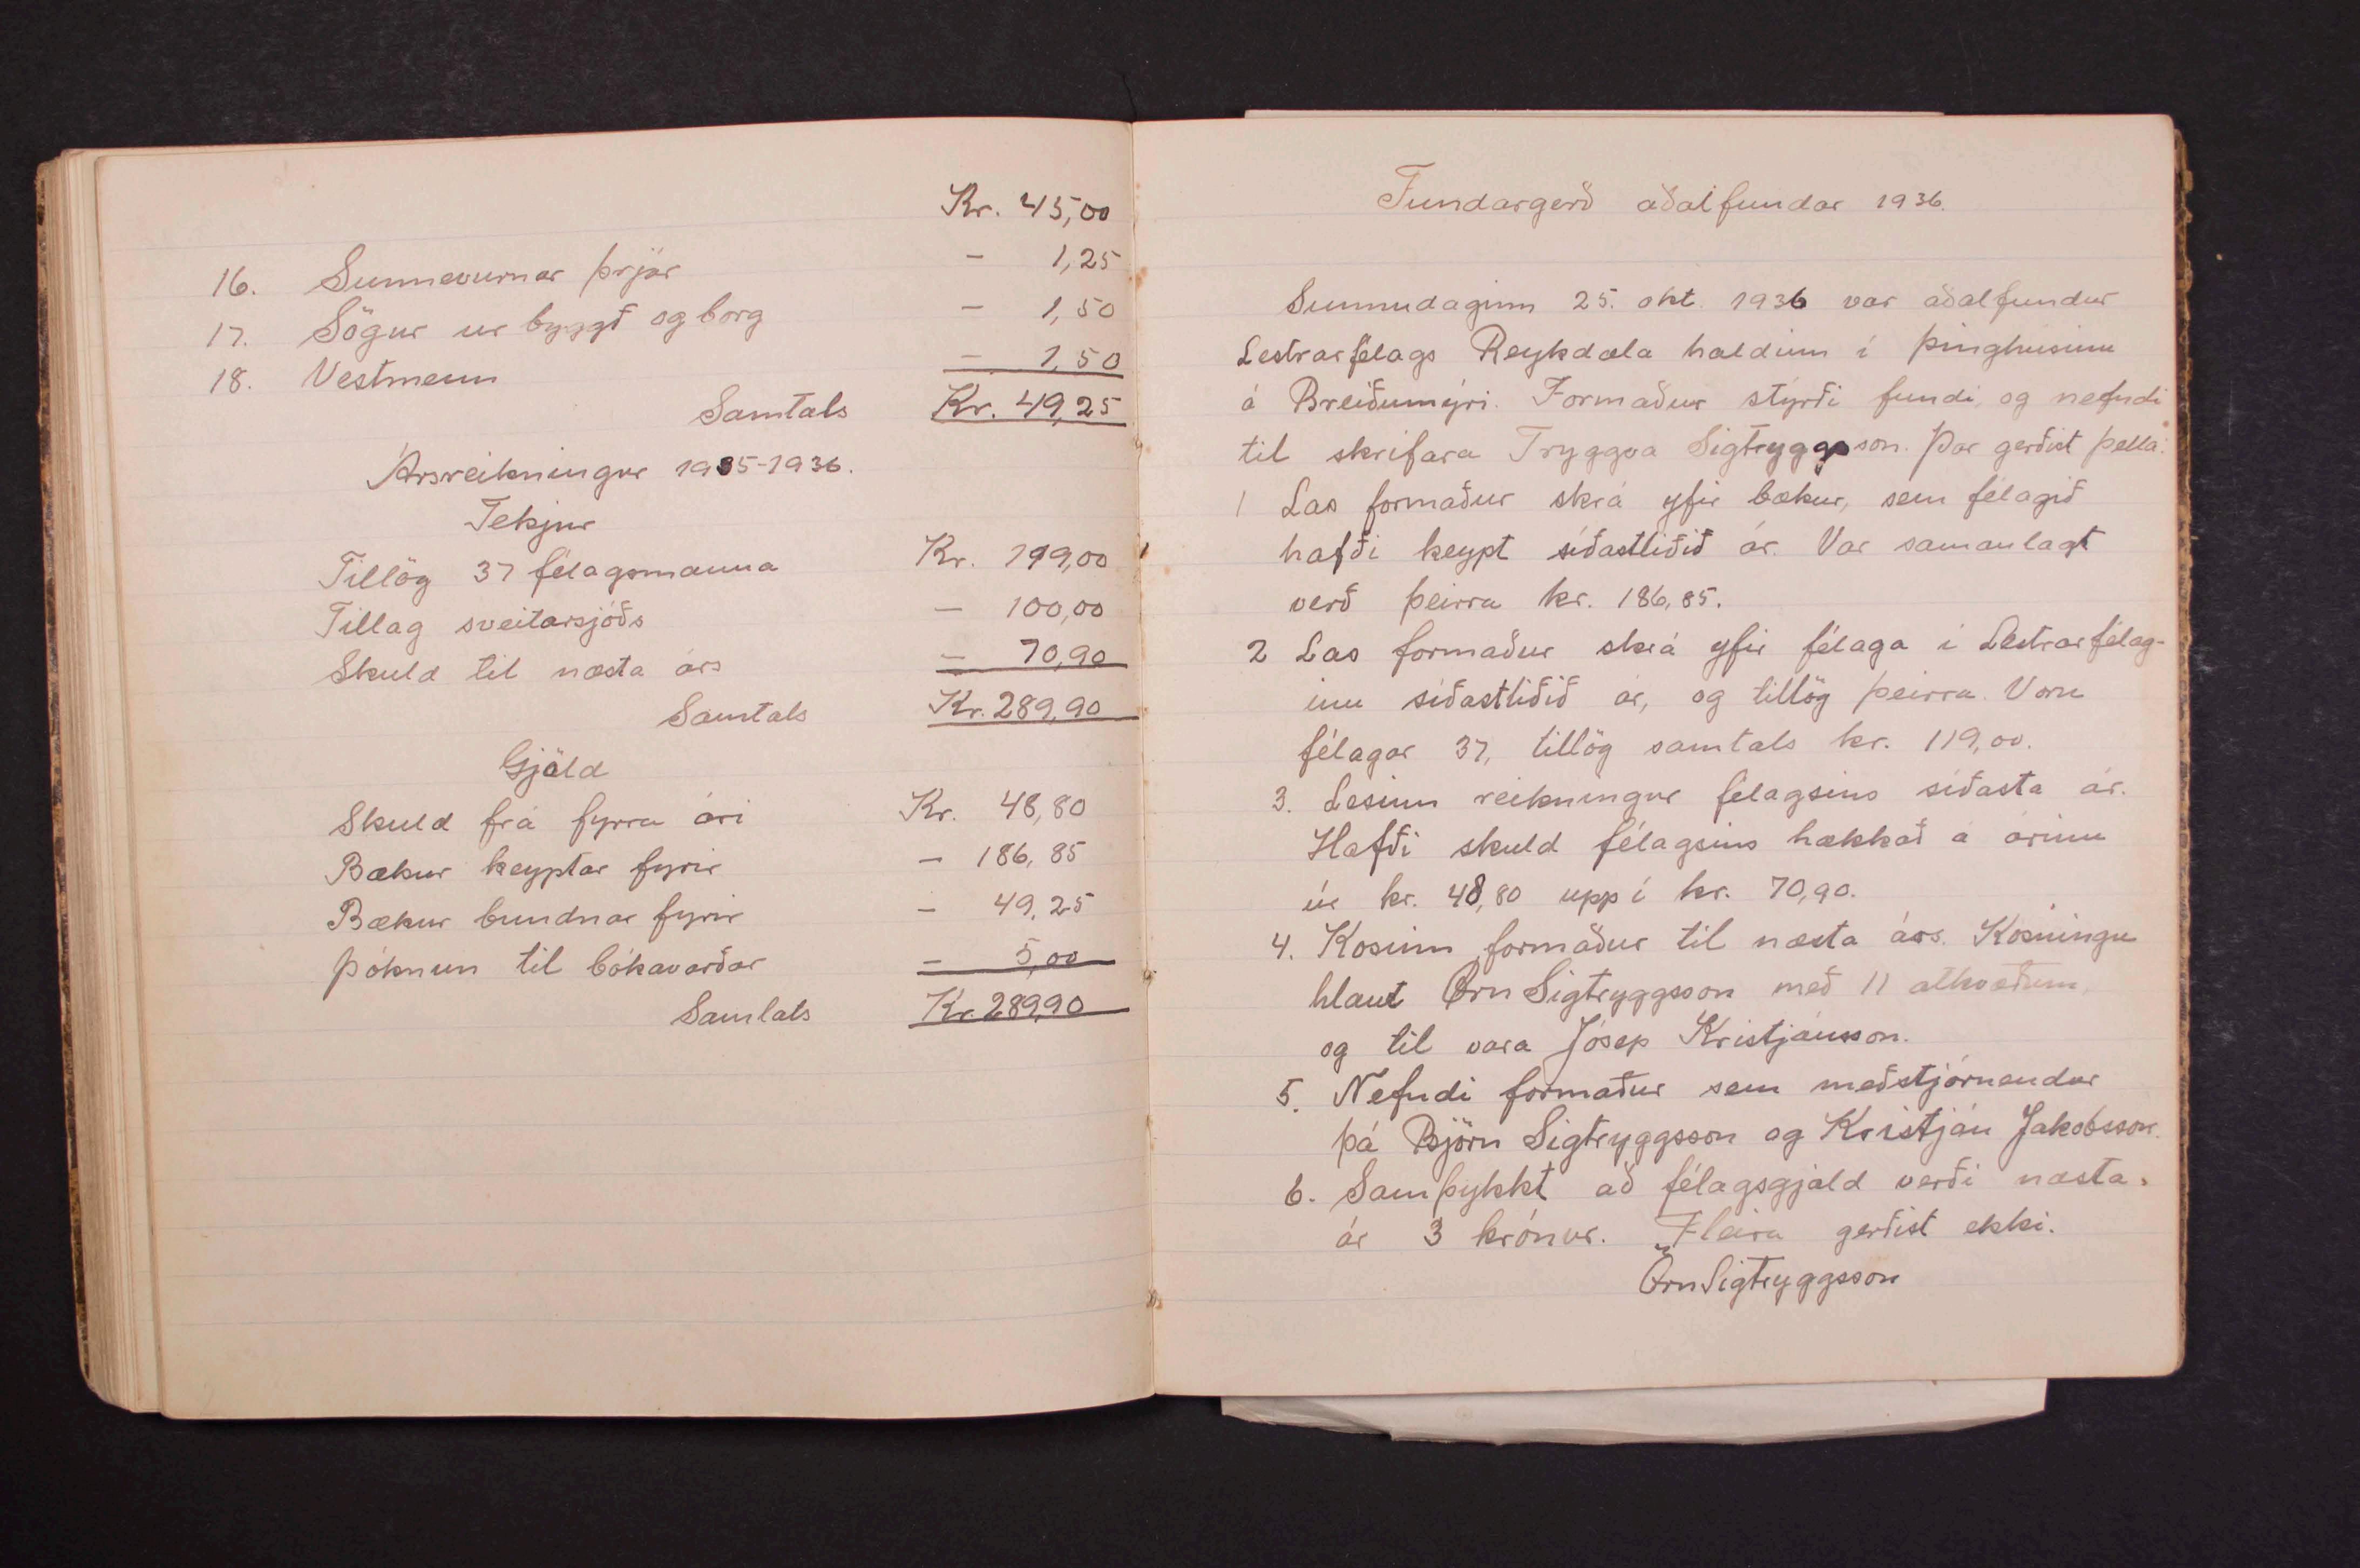 Kr. 45,00
16. Sunnevurnar þrjár — 1,25
17. Sögur úr byggð og borg — 1,50
18. Vestmenn — 1,50
Samtals Kr. 49,25
Ársreikningur 1935-1936.
Tekjur
Tillög 37 félagsmanna Kr. 119,00
Tillag sveitarsjóðs — 100,00
Skuld til næsta árs — 70,90
Samtals Kr. 289,90
Gjöld
Skuld frá fyrra ári Kr. 48,80
Bækur keyptar fyrir — 186,85
Bækur bundnar fyrir — 49,25
Þóknun til bókavarðar — 5,00
Samtals Kr. 289,90
Fundargerð aðalfundar 1936.
Sunnudaginn 25. okt. 1936 var aðalfundur
Lestrarfélags Reykdæla haldinn í þinghúsinu
á Breiðumýri. Formaður stýrði fundi, og nefndi
til skrifara Tryggva Sigtryggsson. Þar gerðist þetta:
1 Las formaður skrá yfir bækur, sem félagið
hafði keypt síðastliðið ár. Var samanlagt
verð þeirra kr. 186,85.
2 Las formaður skrá yfir félaga í Lestrarfélag-
inu síðastliðið ár, og tillög þeirra. Voru
félagar 37, tillög samtals kr. 119,00.
3. Lesinn reikningur félagsins síðasta ár.
Hafði skuld félagsins hækkað á árinu
úr kr. 48,80 upp í kr. 70,90.
4. Kosinn formaður til næsta árs. Kosningu
hlaut Örn Sigtryggsson með 11 atkvæðum,
og til vara Jósep Kristjánsson.
5. Nefndi formaður sem meðstjórnendur
þá Björn Sigtryggsson og Kristján Jakobsson.
6. Samþykkt að félagsgjald verði næsta
ár 3 krónur. Fleira gerðist ekki.
Örn Sigtryggsson